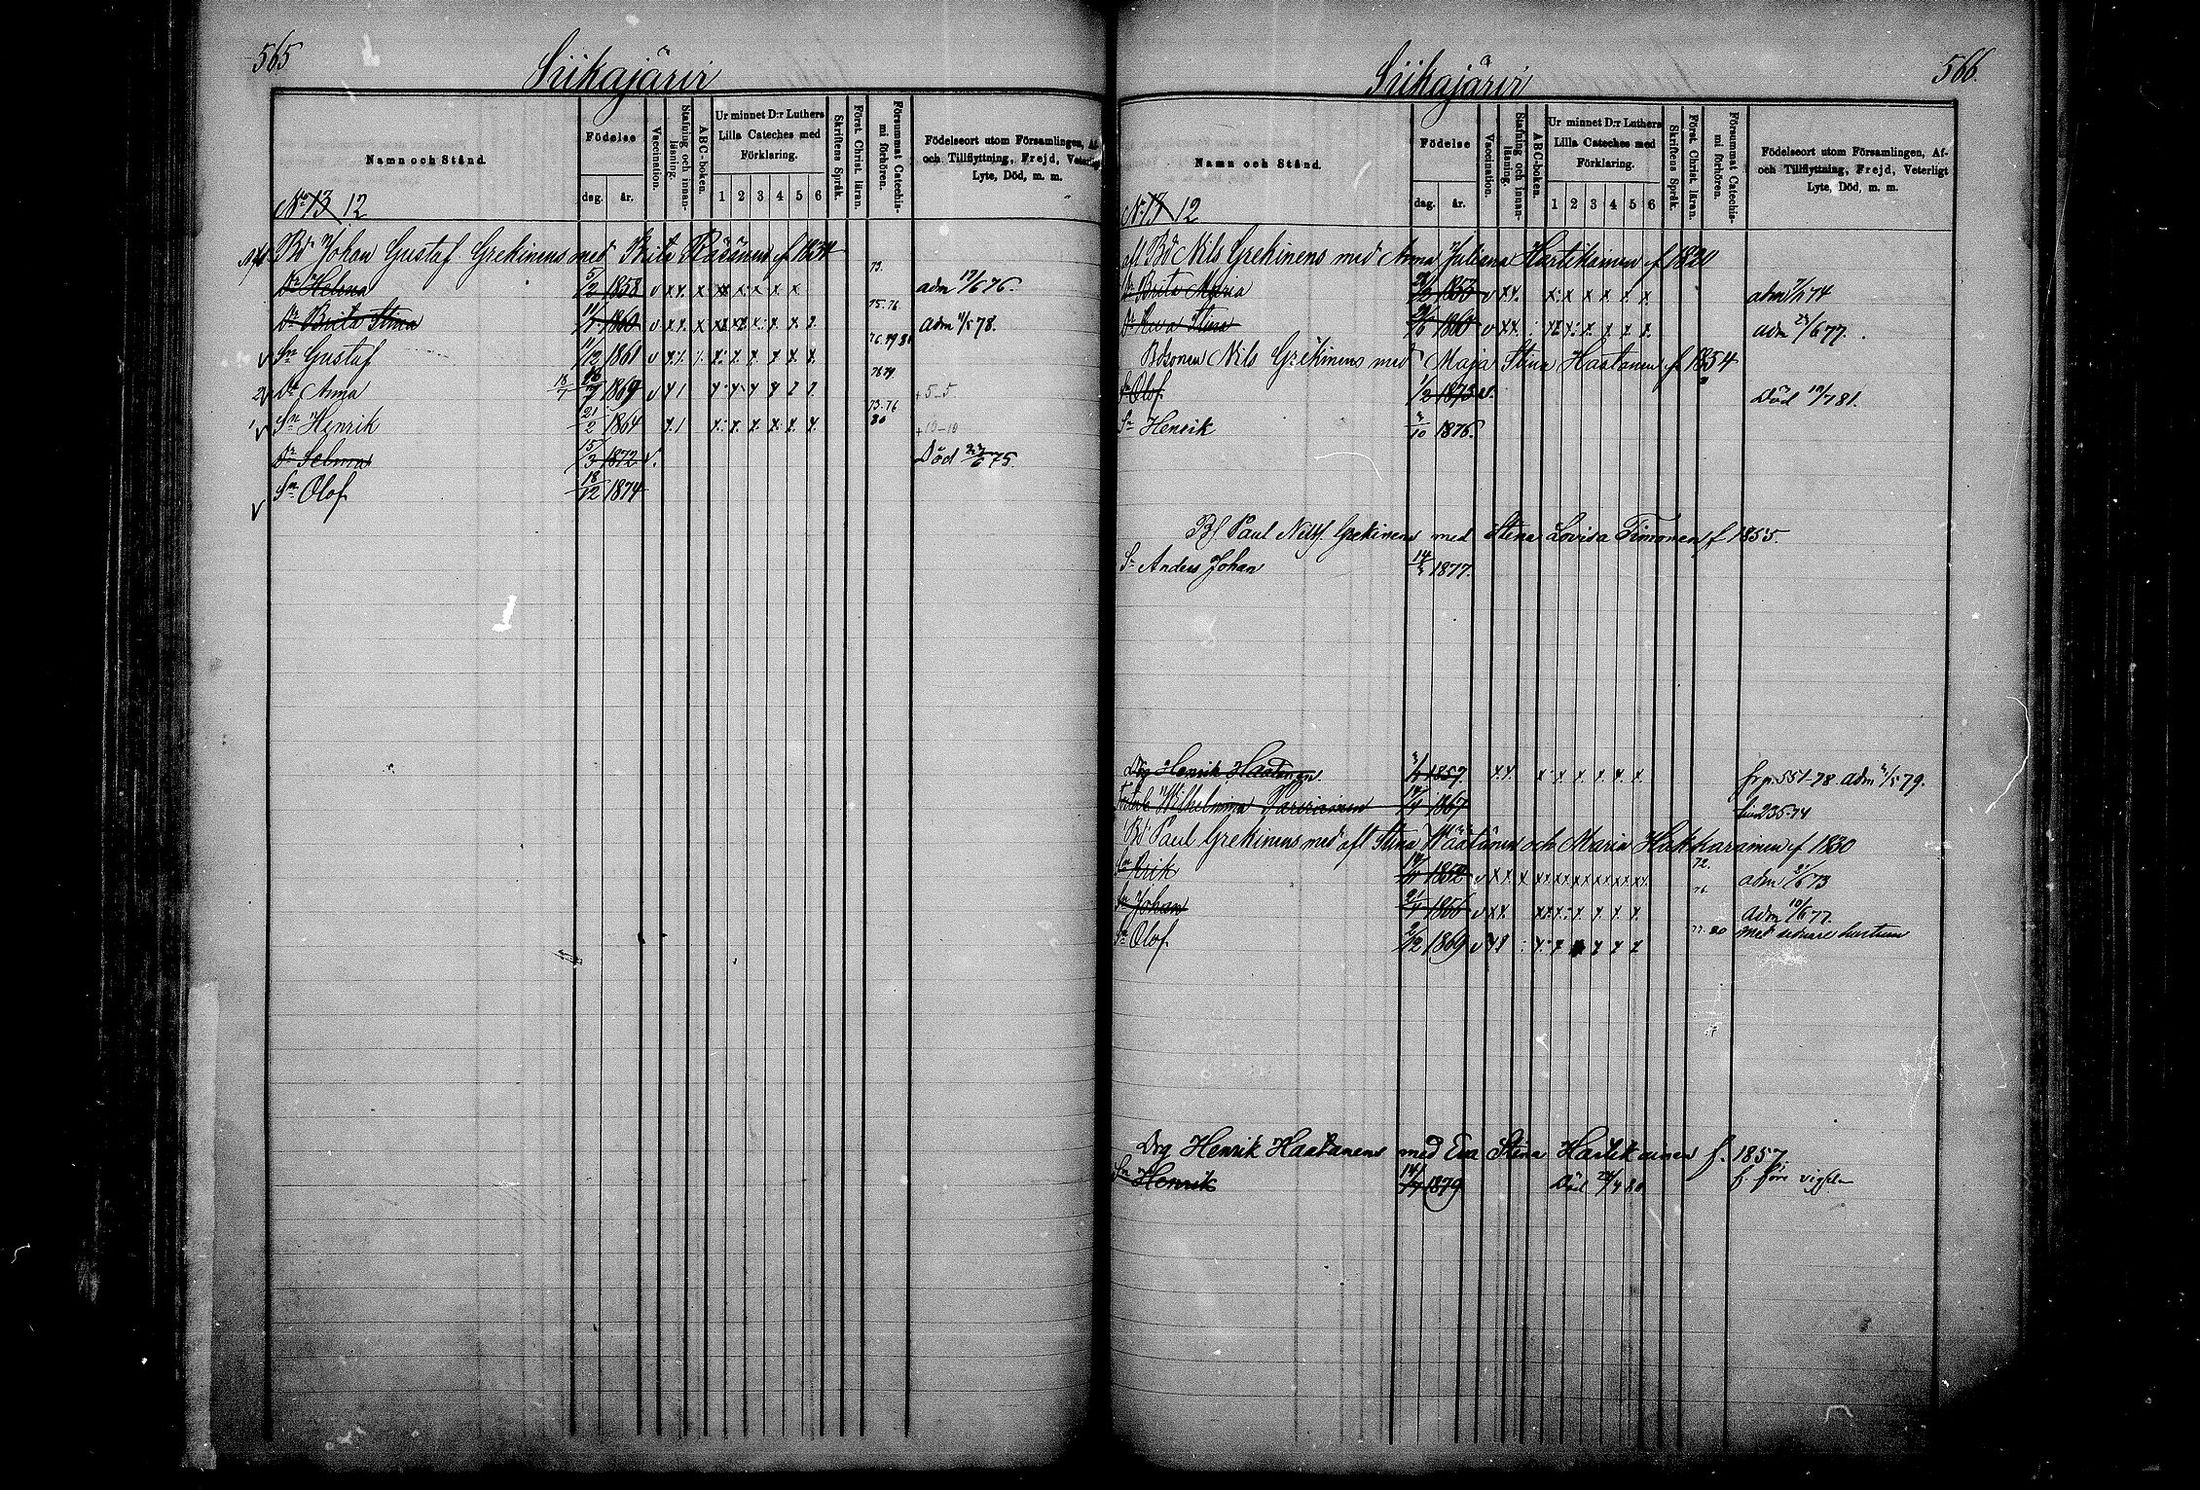 565
Siikajärvi
Namn och Stånd.
Födelse
dag. år.
Vaccination.
Stafning och innan-läsning.
ABC-boken.
Ur minnet D:r Luthers Lilla Cateches med Förklaring.
1 2 3 4 5 6
Skriftens Språk.
Först. Christ. läran.
Försummat Catechis-mi förhören.
Födelseort utom Församlingen, Af-
och Tillflyttning, Frejd, Veterligt
Lyte, Död, m. m.
No 13 12
Bd Johan Gustaf Grekinens med Brita Räsänen f 1834
Dr Helena 5/2 1858 v xx x xx x x x x 73. adm 17/6 76.
Dr Brita Stina 1860 v x x x x x 75.76 adm 4/5 78.
Sn Gustaf 11/12 1861 v x x x x x x
Dr Anna 1869 v
Sn Henrik 21/2 1864 x 1 x x x x x x 73.76 80
Dr Selma 15/3 1872 v. Död 6 75.
Sn Olof 18/12 1874
566.
Siikajärvi
Namn och Stånd.
Födelse
dag. år.
Vaccination.
Stafning och innan-läsning.
ABC-boken.
Ur minnet D:r Luthers Lilla Cateches med Förklaring.
1 2 3 4 5 6
Skriftens Språk.
Först. Christ. läran.
Försummat Catechis-mi förhören.
Födelseort utom Församlingen, Af-
och Tillflyttning, Frejd, Veterligt
Lyte, Död, m. m.
No 13 12
Bd Nils Grekinens med Anna Juliana Hartikainen f 1820
Dr Brita Maria 1853 v xx. x x x x x x adm 74
Dr Eva Stina 1860 v xx x x x x x adm 77.
Bdsonen Nils Grekinens med Maja Stina Haatanen f 1854
Sn Olof 1/2 1873 v. Död 19/7 81.
Sn Henrik 10 1876.
Paul Grekinens med Stina Lovisa Timonen f 1855.
Sn Anders Johan 14 1877.
Drg Henrik Haatanen 1857. xx x x x x x x fr p. 551-78. adm 79.
Wilhelmina 1867 235-74
Bd Paul Grekinens med afl Stina Väätänen och Maria Hakkarainen f 1830
Sn Erik 1852 v xx x 72. adm 6 73
Sn Johan 1856 v xx x x x x x 76. adm 10/6 77.
Sn Olof 2/12 1869 v x x x x x 77. 80 med senare hustrun
Drg Henrik Haatanens med Eva Stina Hartikainen f. 1857
Sn Henrik 1879 Död f. före vigseln